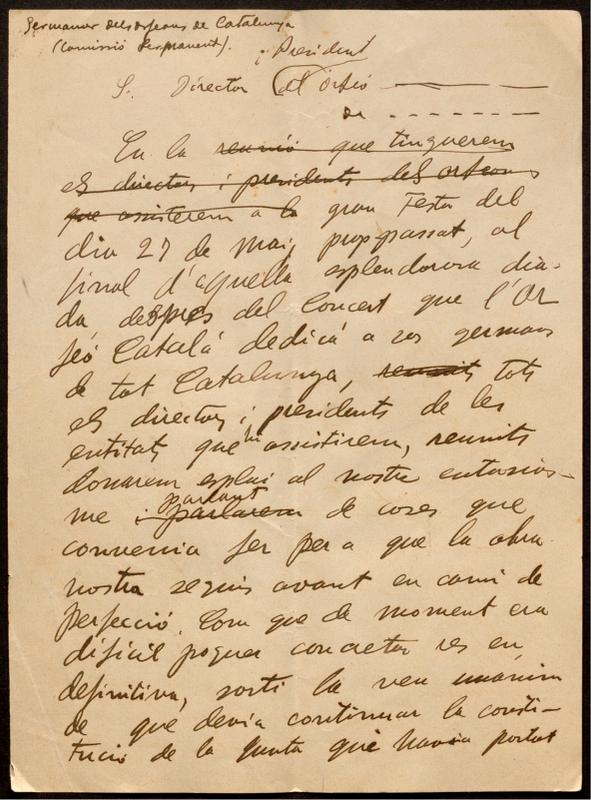 Germanor dels Orfeons de Catalunya
(Comissió Permanent).
i President
S. Director del Orfeó
de - - - - - - -
En la reunió que tinguerem
els directors i presidents dels orfeons
que assisterem a la gran Festa del
dia 27 de Maig prop-passat, al
final d'aquella esplendorosa dia-
da després del Concert que l'Or
feó Català dedicà a sos germans
de tot Catalunya, reunits tots
els directors i presidents de les
entitats que hi assistirem, reunits
donarem esplai al nostre entusias-
me i parlarem parlant de coses que
convenia fer per a que la obra
nostra seguis avant en camí de
perfecció. Com que de moment era
dificil poguer concretar res en
definitiva, sortí la veu unànim
de que devia continuar la consti-
tució de la Junta que havia portat